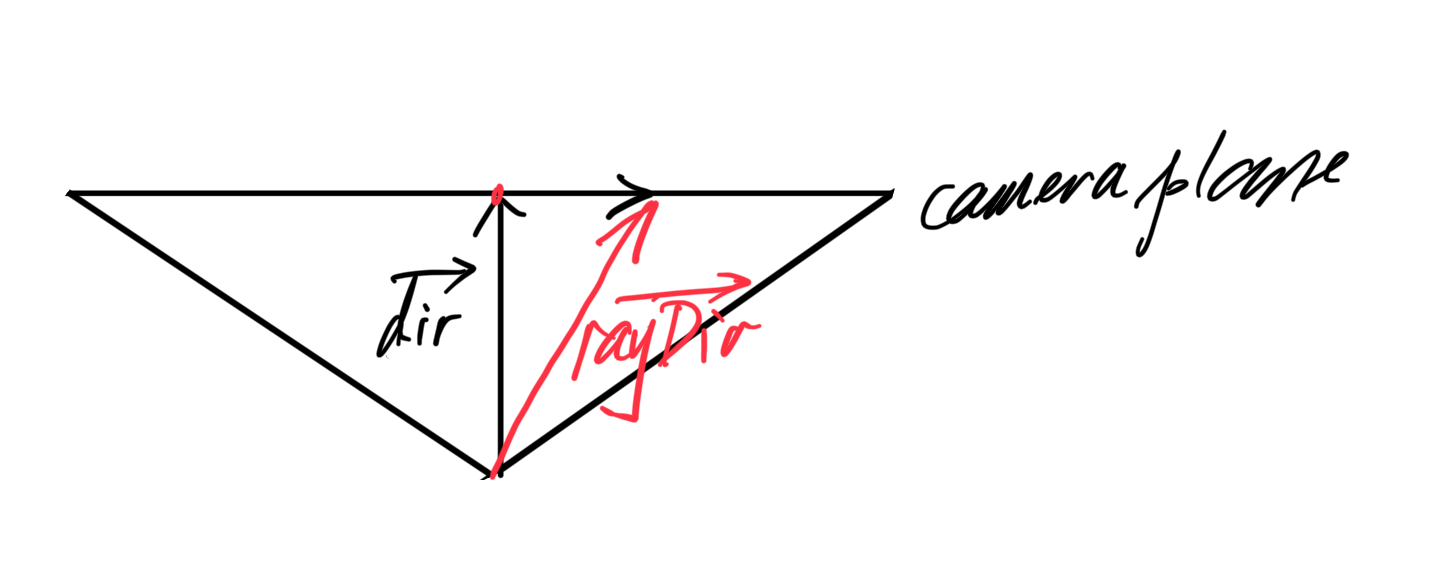 camera plane
dir
rayDir